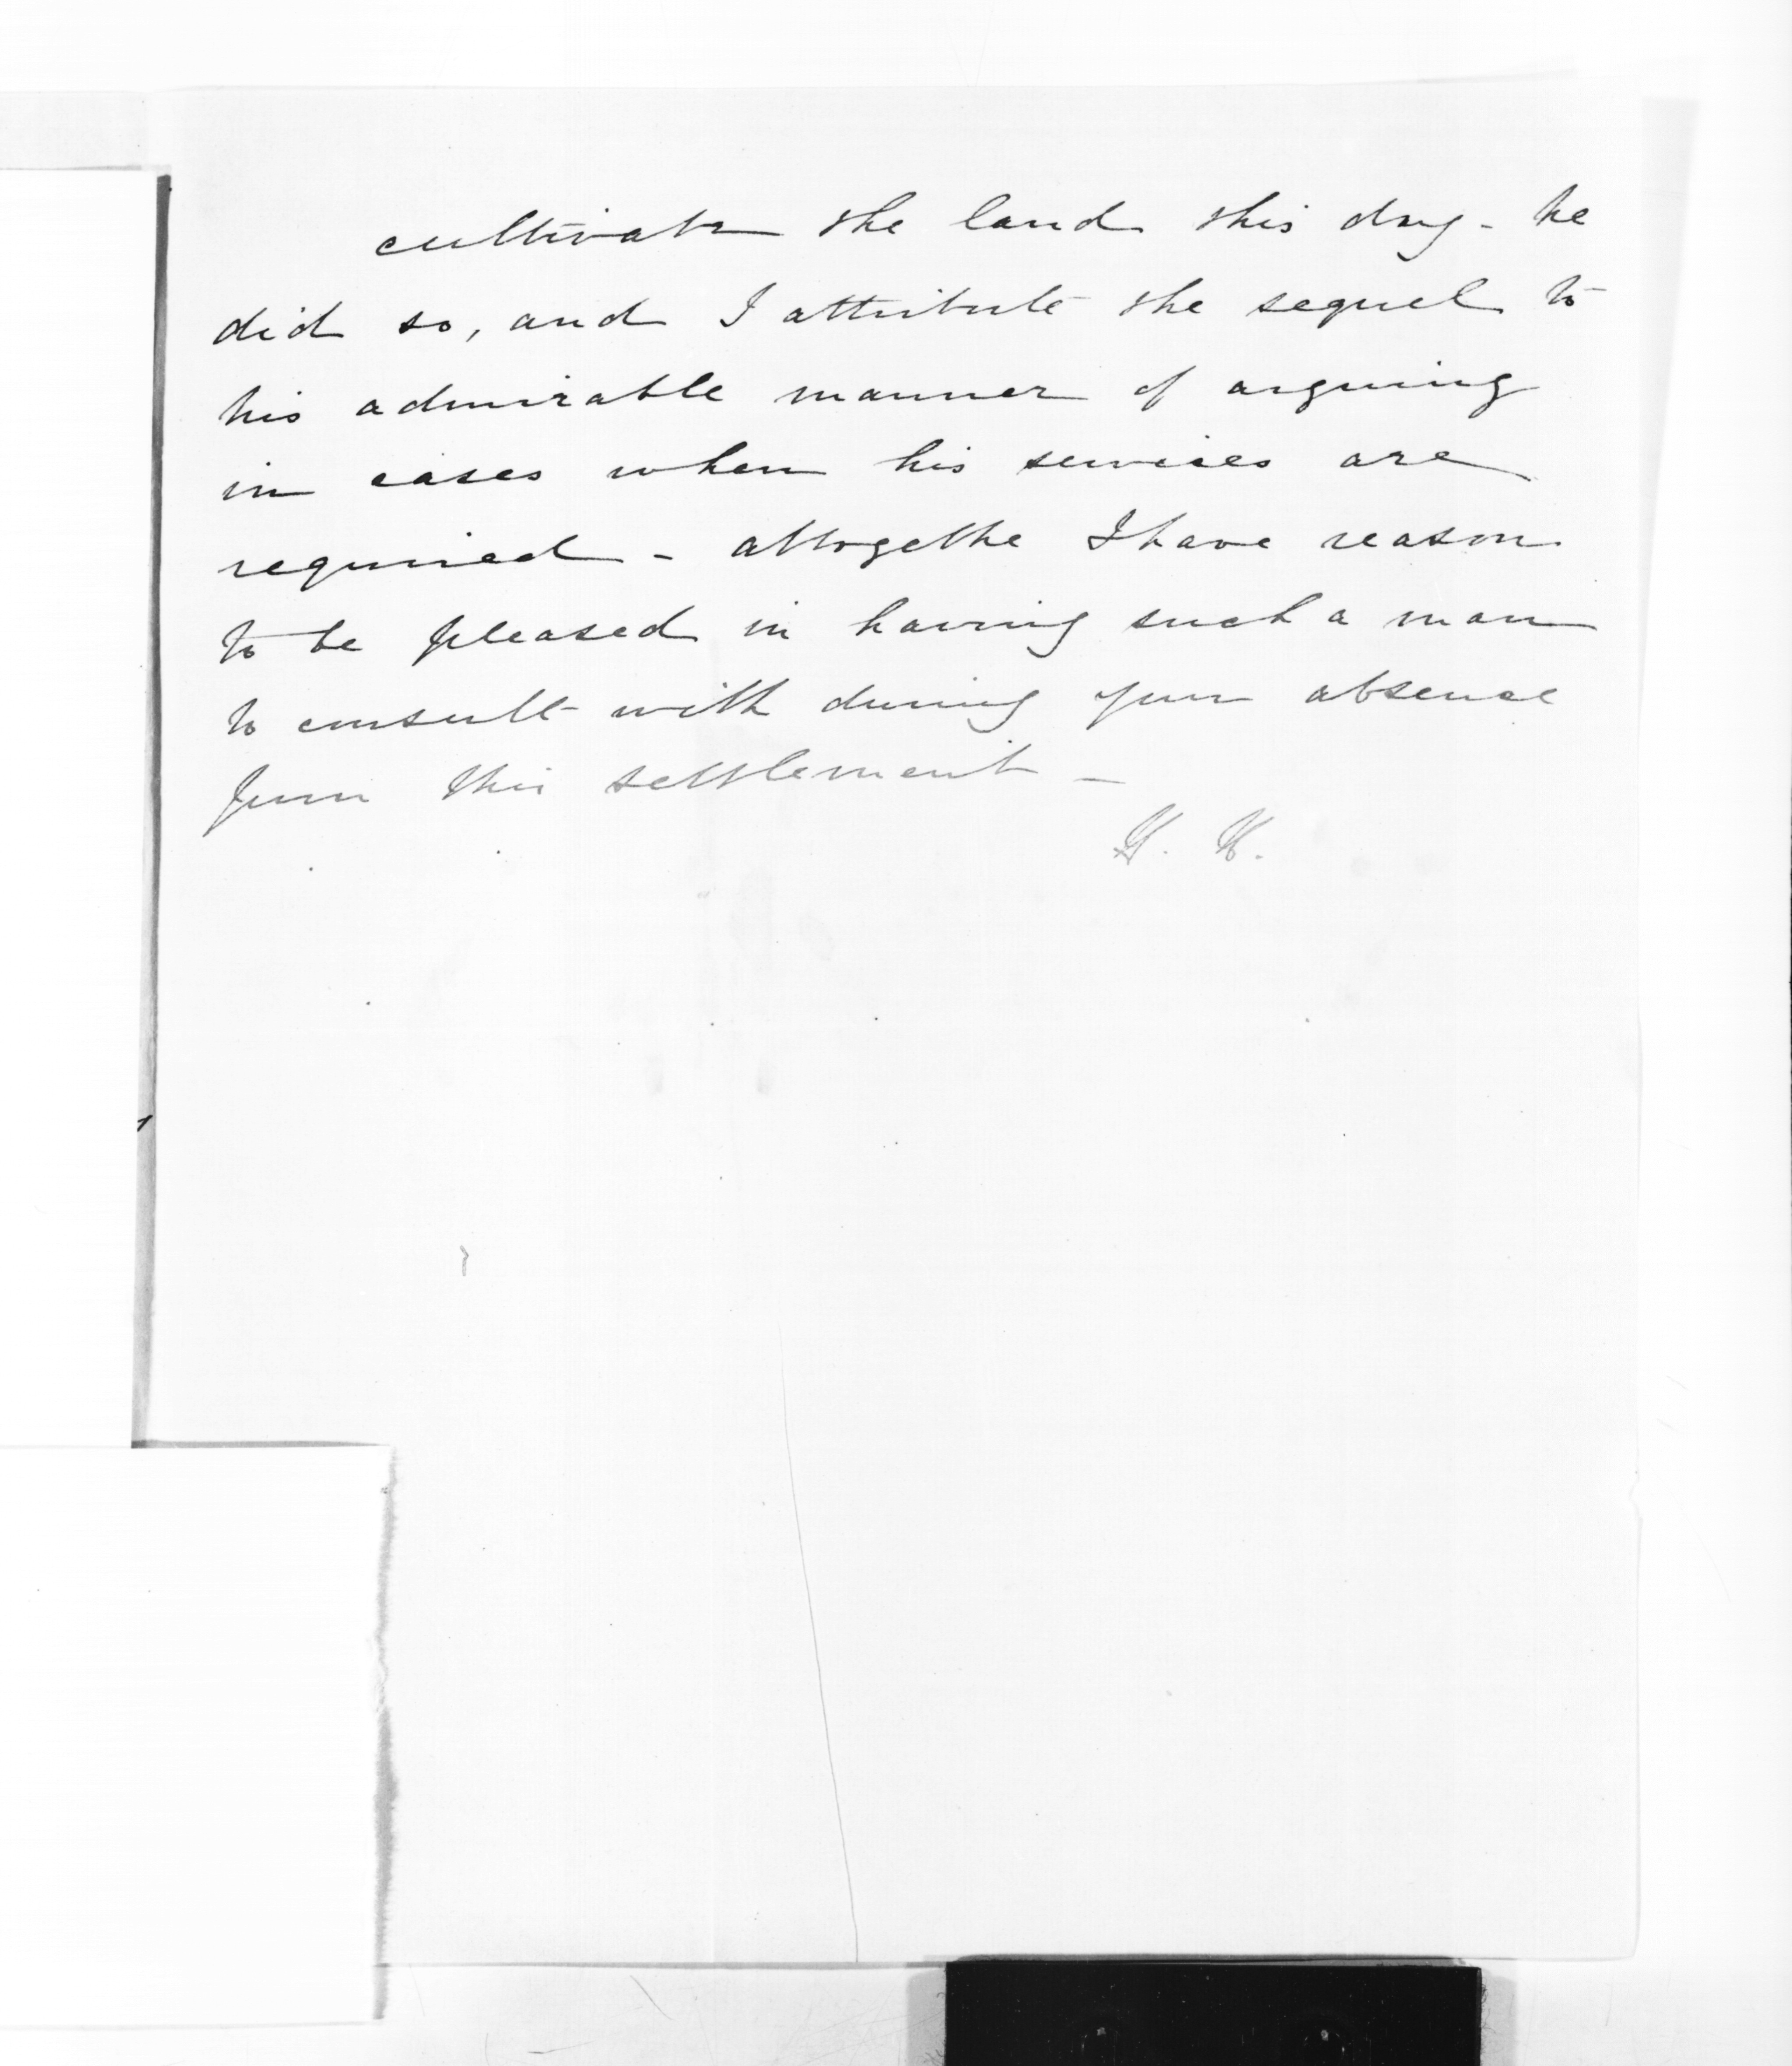 cultivate the land this day - he
did so, and I attribute the sequel to
his admirable manner of arguing
in cases when his services are
required - altogethe I have reason
to be pleased in having such a man
to consult with during your absence
from this settlement -